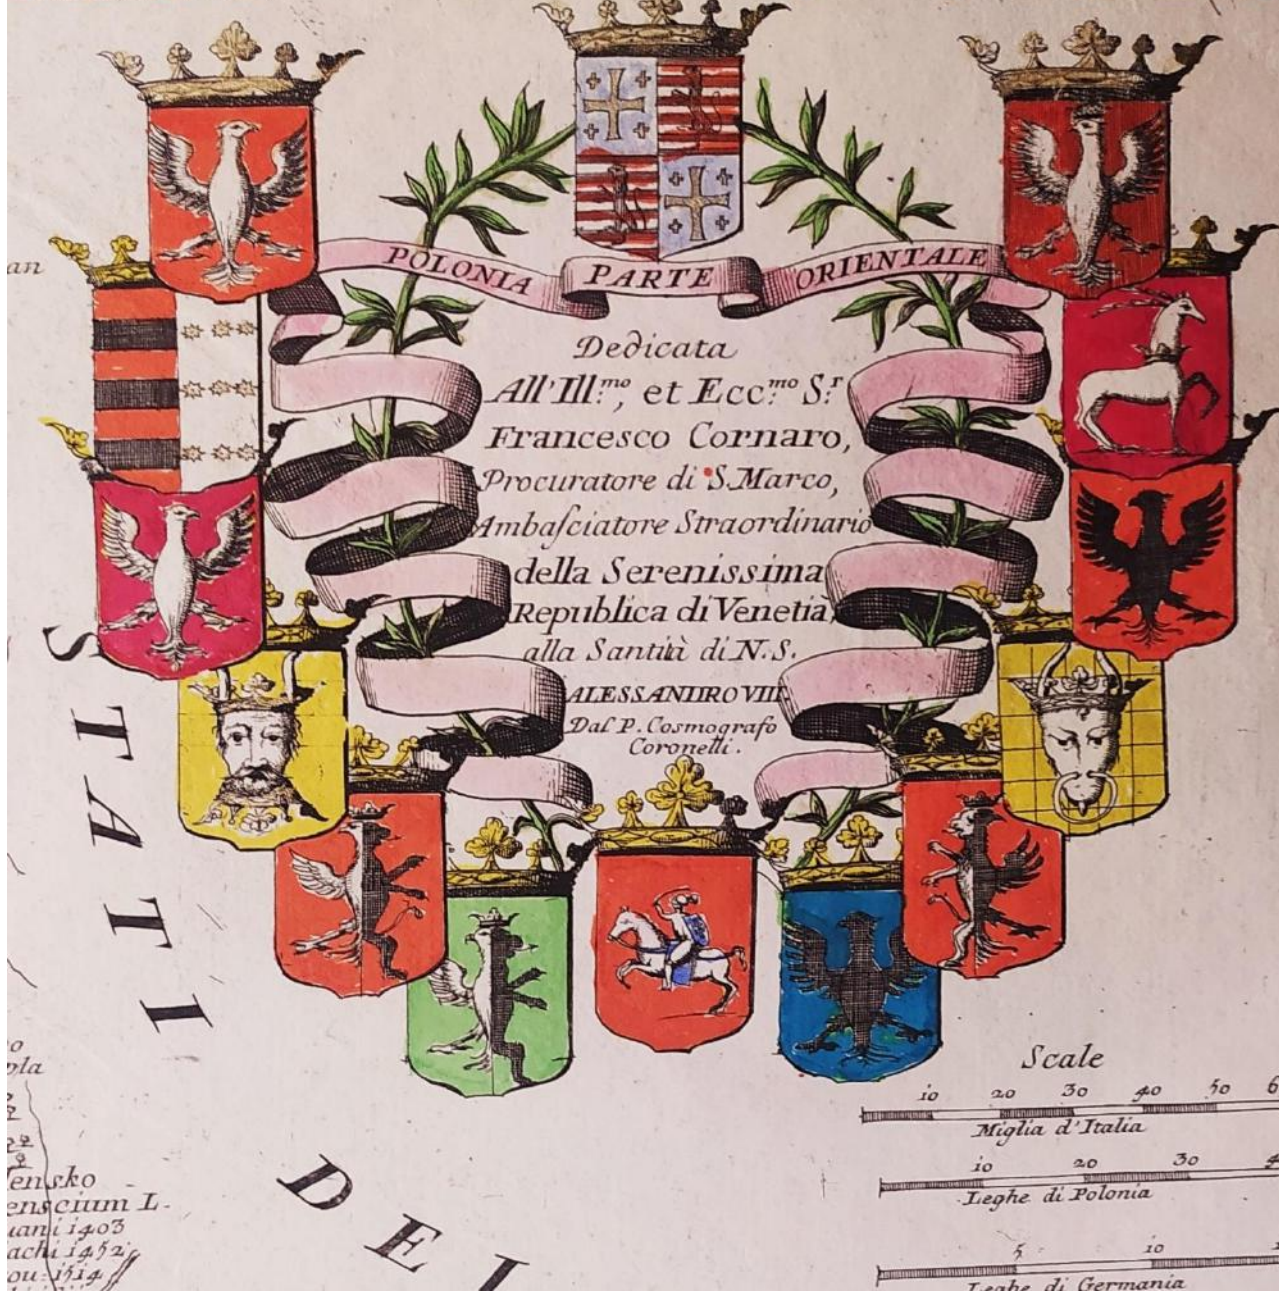 POLONIA PARTE ORIENTALE
Dedicata
All'Ill.mo, et Ecc.mo S.r
Francesco Cornaro,
Procuratore di S. Marco,
Ambasciatore Straordinario
della Serenissima
Republica di Venetia,
alla Santità di N. S.
ALESSANDRO VIII
Dal P. Cosmografo
Coronelli.
an
STATI
DEL
Scale
10 20 30 40 50 6
Miglia d'Italia
10 20 30 4
Leghe di Polonia
5 10 1
Leghe di Germania
ensko
enscium L.
uani 1403
achi 1452
ou: 1514